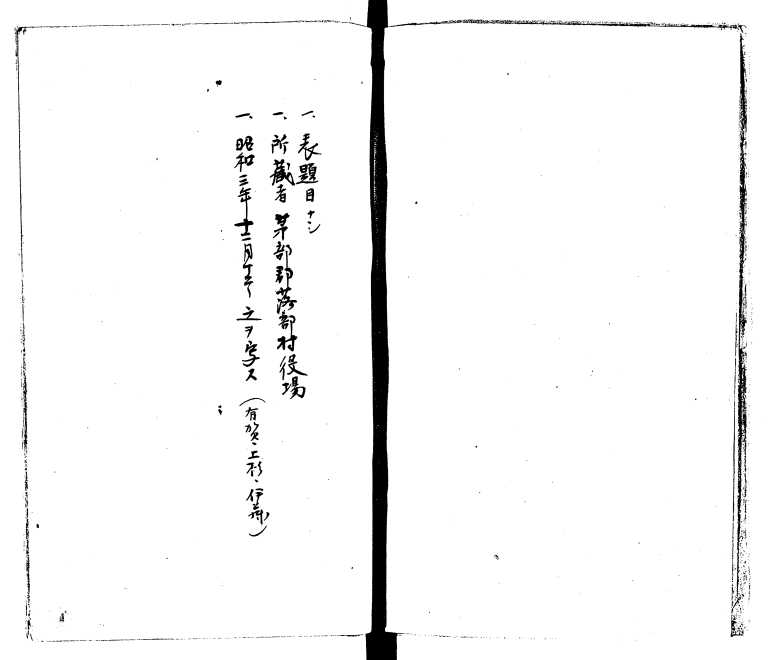 一、表題目ナシ
一、所蔵者 茅部郡落部村役場
一、昭和三年十二月 之ヲ写ス (有賀、上杉、伊藤)